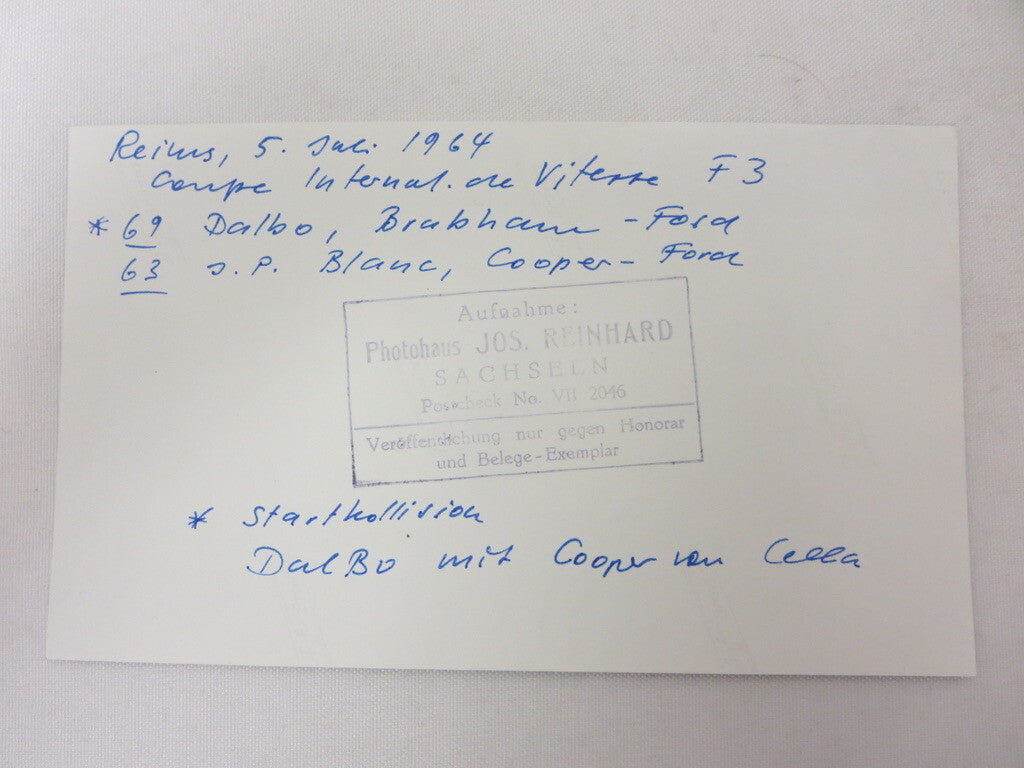 Reims, 5. Juli 1964
Coupe Internat. de Vitesse F3
* 69 Dalbo, Brabham - Ford
63 J. P. Blanc, Cooper - Ford
Aufnahme:
Photohaus JOS. REINHARD
SACHSELN
Postcheck No. VII 2046
Veröffentlichung nur gegen Honorar
und Belege-Exemplar
* Startkollision
DalBo mit Cooper von Cella